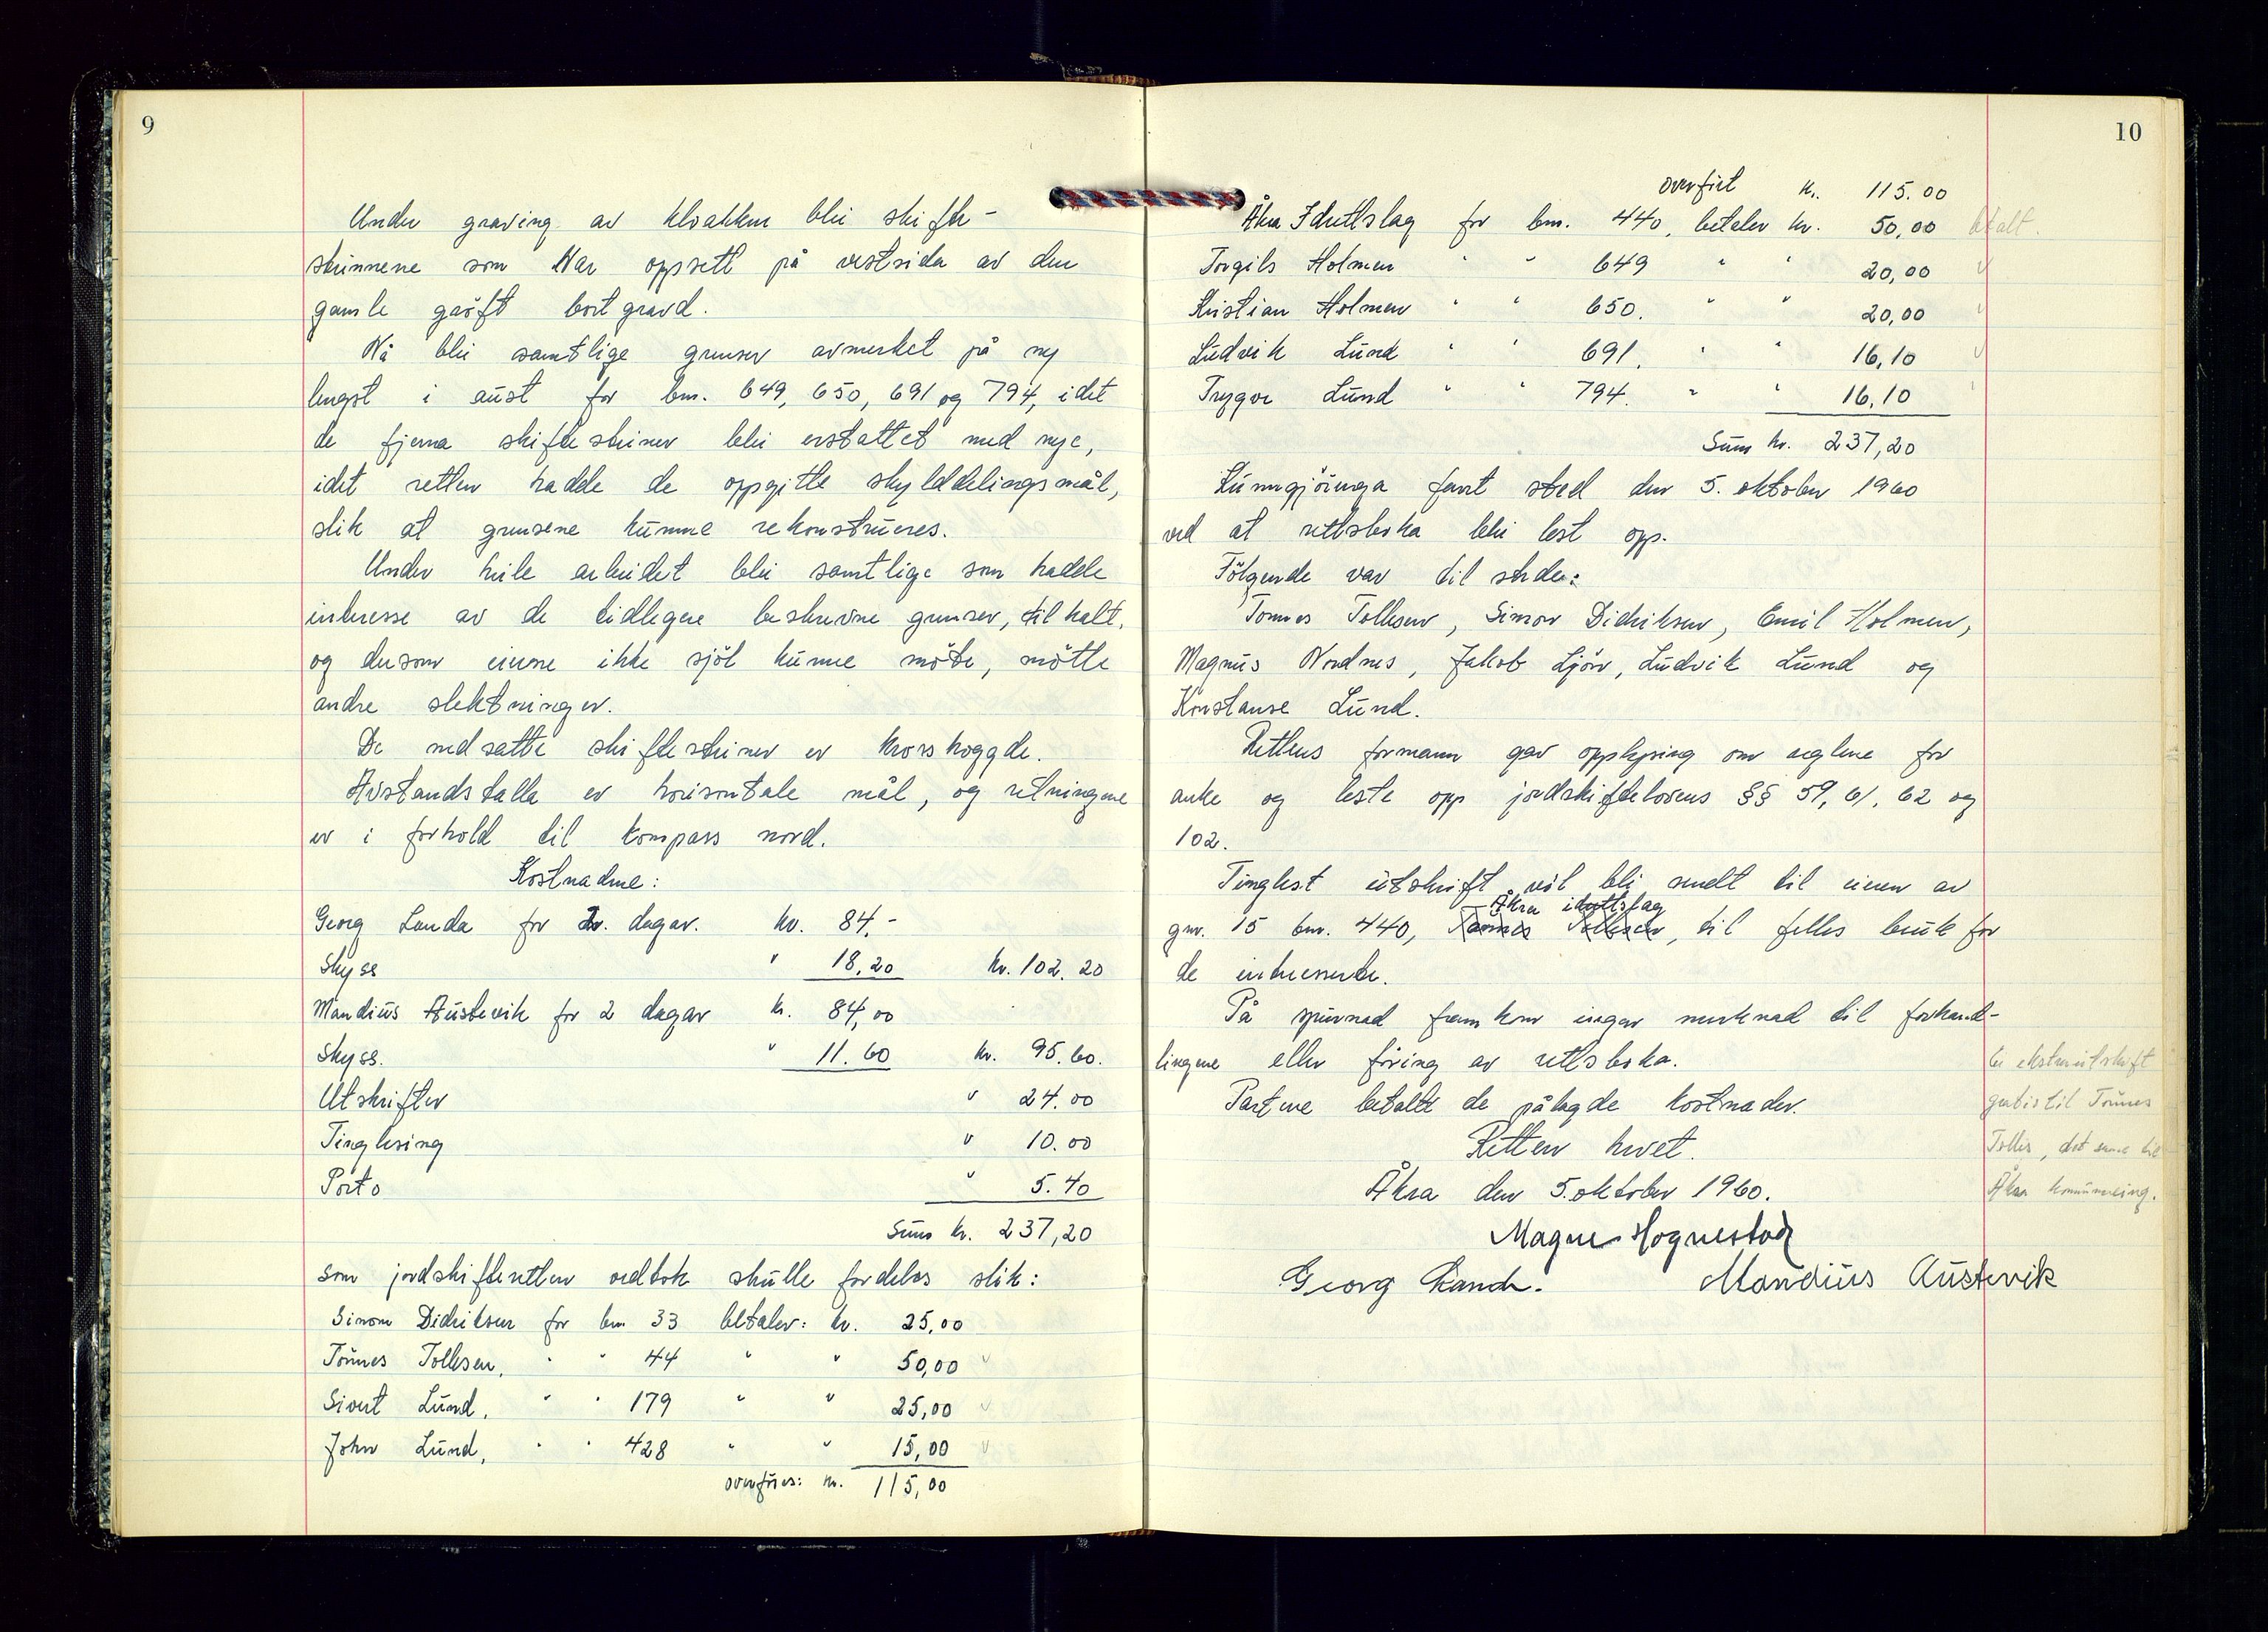 9
Under graving av kloakken blei skifte-
steinnene som var oppsett på vestsida av den
gamle grøft bortgravd.
Nå blei samtlige grenser avmerket på ny
lengst i aust for bnr. 649, 650, 691 og 794, idet
de fjerna skiftesteiner blei erstattet med nye,
idet retten hadde de oppgitte skylddelingsmål,
slik at grensene kunne rekonstrueres.
Under heile arbeidet blei samtlige som hadde
interesse av de tidlegere beskrevne grenser, tilkalt,
og dersom einne ikke sjøl kunne møte, møtte
andre slektninger.
De nedsatte skiftesteiner er krosshoggde.
Avstandstalla er horisontale mål, og retningene
er i forhold til kompass nord.
Kostnadene:
Georg Landa for 2. dagar. kr. 84,-
Skyss " 18,20 kr. 102.20
Mandius Austevik for 2 dagar kr. 84,00
Skyss. " 11.60 kr. 95.60.
Utskrifter " 24.00
Tinglesing " 10.00
Porto " 5.40
Sum kr. 237,20
som jordskifteretten vedtok skulle fordeles slik:
Simon Didriksen for bnr 33 betaler: kr. 25,00
Tønnes Tollesen, " " 44 " " 50,00 v
Sivert Lund, " " 179 " " 25,00 v
John Lund, " " 428 " " 15,00 v
overføres: kr. 115,00
10
overført kr. 115.00
Åkra Idrettslag for bnr. 440, betaler kr. 50,00 betalt.
Torgils Holmen " " 649 " " 20,00 v
Kristian Holmen " " 650. " " 20,00 v
Ludvik Lund " " 691. " " 16,10 v
Trygve Lund " " 794. " " 16,10
Sum kr. 237,20
Kunngjøringa fant sted den 5. oktober 1960
ved at rettsboka blei lest opp.
Følgende var til stede:
Tønnes Tollesen, Simon Didriksen, Emil Holmen,
Magnus Nordnes, Jakob Ljöv, Ludvik Lund og
Konstanse Lund.
Rettens formann gav opplysing om reglene for
anke og leste opp jordskiftelovens §§ 59, 61, 62 og
102.
Tinglest utskrift vil bli sendt til eieren av
Åkra idrettslag
gnr. 15 bnr. 440, Tønnes Tollesen, til felles bruk for
de interesserte.
På spurnad framkom ingen merknad til forhand-
lingene eller føring av rettsboka.
Partene betalte de pålagde kostnader.
Retten hevet.
Åkra den 5. oktober 1960.
Magne Hognestad
Georg Landa. Mandius Austevik
ekstrautskrift
gratis til Tønnes
Tolles, det same til
Åkra kommuneing.